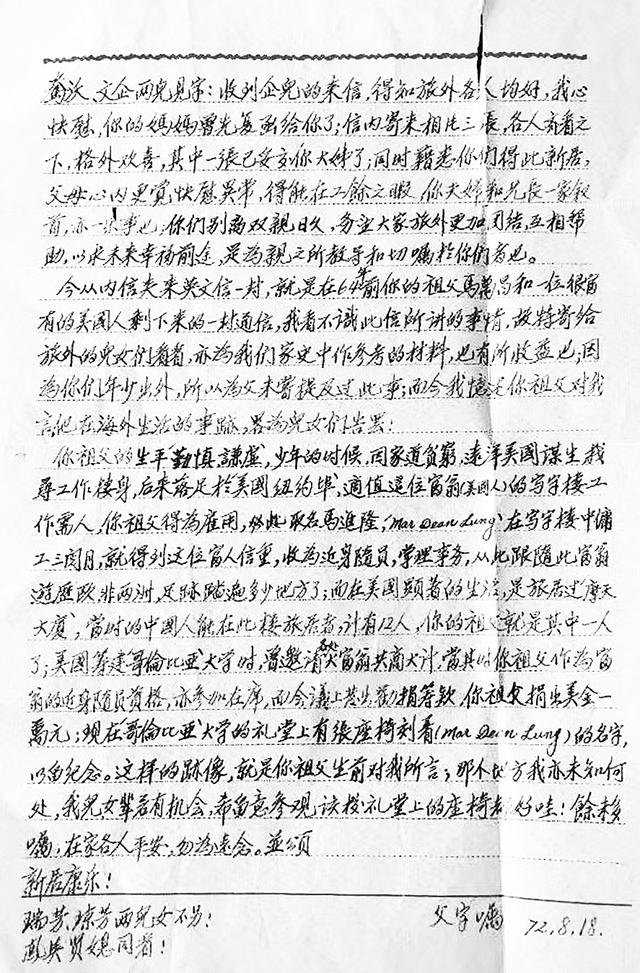 文企两兒見字：收到企兒的来信，得知旅外各人均好，我心
快慰，你的媽媽曾先复函給你了；信内寄来相片三張，各人齐看之
下，格外欢喜，其中一張已妥交你大姊了；同时藉悉你们得此新居，
父母心内更覚快慰異常，得能在工餘之暇，你夫婦和兄長一家叙
首，亦一乐事也，你们别离双親日久，务宜大家旅外更加团结，互相帮
助，以求未来幸福前途，是為親之所教导和切嘱於你们者也。
今从内信夹来英文信一封，就是在64年前你的祖父馬萬昌和一位很富
有的美國人剩下来的一封通信，我看不識此信所讲的事情，故特寄給
旅外的兒女们看看，亦為我们家史中作参考的材料，也有所收益也，因
為你们年少出外，所以為父未曾提及过此事；而今我憶述你祖父对我
言他在海外生活的事跡，畧為兒女们告罢：
你祖父的生平勤慎謙虚，少年的时候，因家道贫窮，遠洋美國謀生，找
尋工作棲身，后来落足於美國纽约埠，適值這位富翁（美國人）的写字楼工
作需人，你祖父得為雇用，於此取名馬進隆，（Mar Dean Lung）在写字楼中傭
工三個月，就得到这位富人信重，收為近身随員，掌理事务，从此跟随此富翁
遊歷欧非两洲，足跡踏遍多少地方了；而在美國顕著的生活，是旅居过摩天
大廈，當时的中國人能在此楼旅居者，计有12人，你的祖父就是其中一人
了；美國筹建哥倫比亚大学时，曾邀请众富翁共商大计，當其时你祖父作為富
翁的近身随員資格，亦参加在席，而今議上共出力捐筹款，你祖父捐出美金一
萬元；現在哥倫比亚大学的礼堂上有張座椅刻着（Mar Dean Lung）的名字，
以留纪念。这样的跡像，就是你祖父生前对我所言；那个地方我亦未知何
处，我兒女輩若有机会，希留意参观该校礼堂上的座椅都好哇！餘未多
嘱，在家各人平安，勿為遠念。並頌
新居康乐！
瑞芳、琼芳两兒女不另！
父字嘱 72.8.18.
賢媳同看！